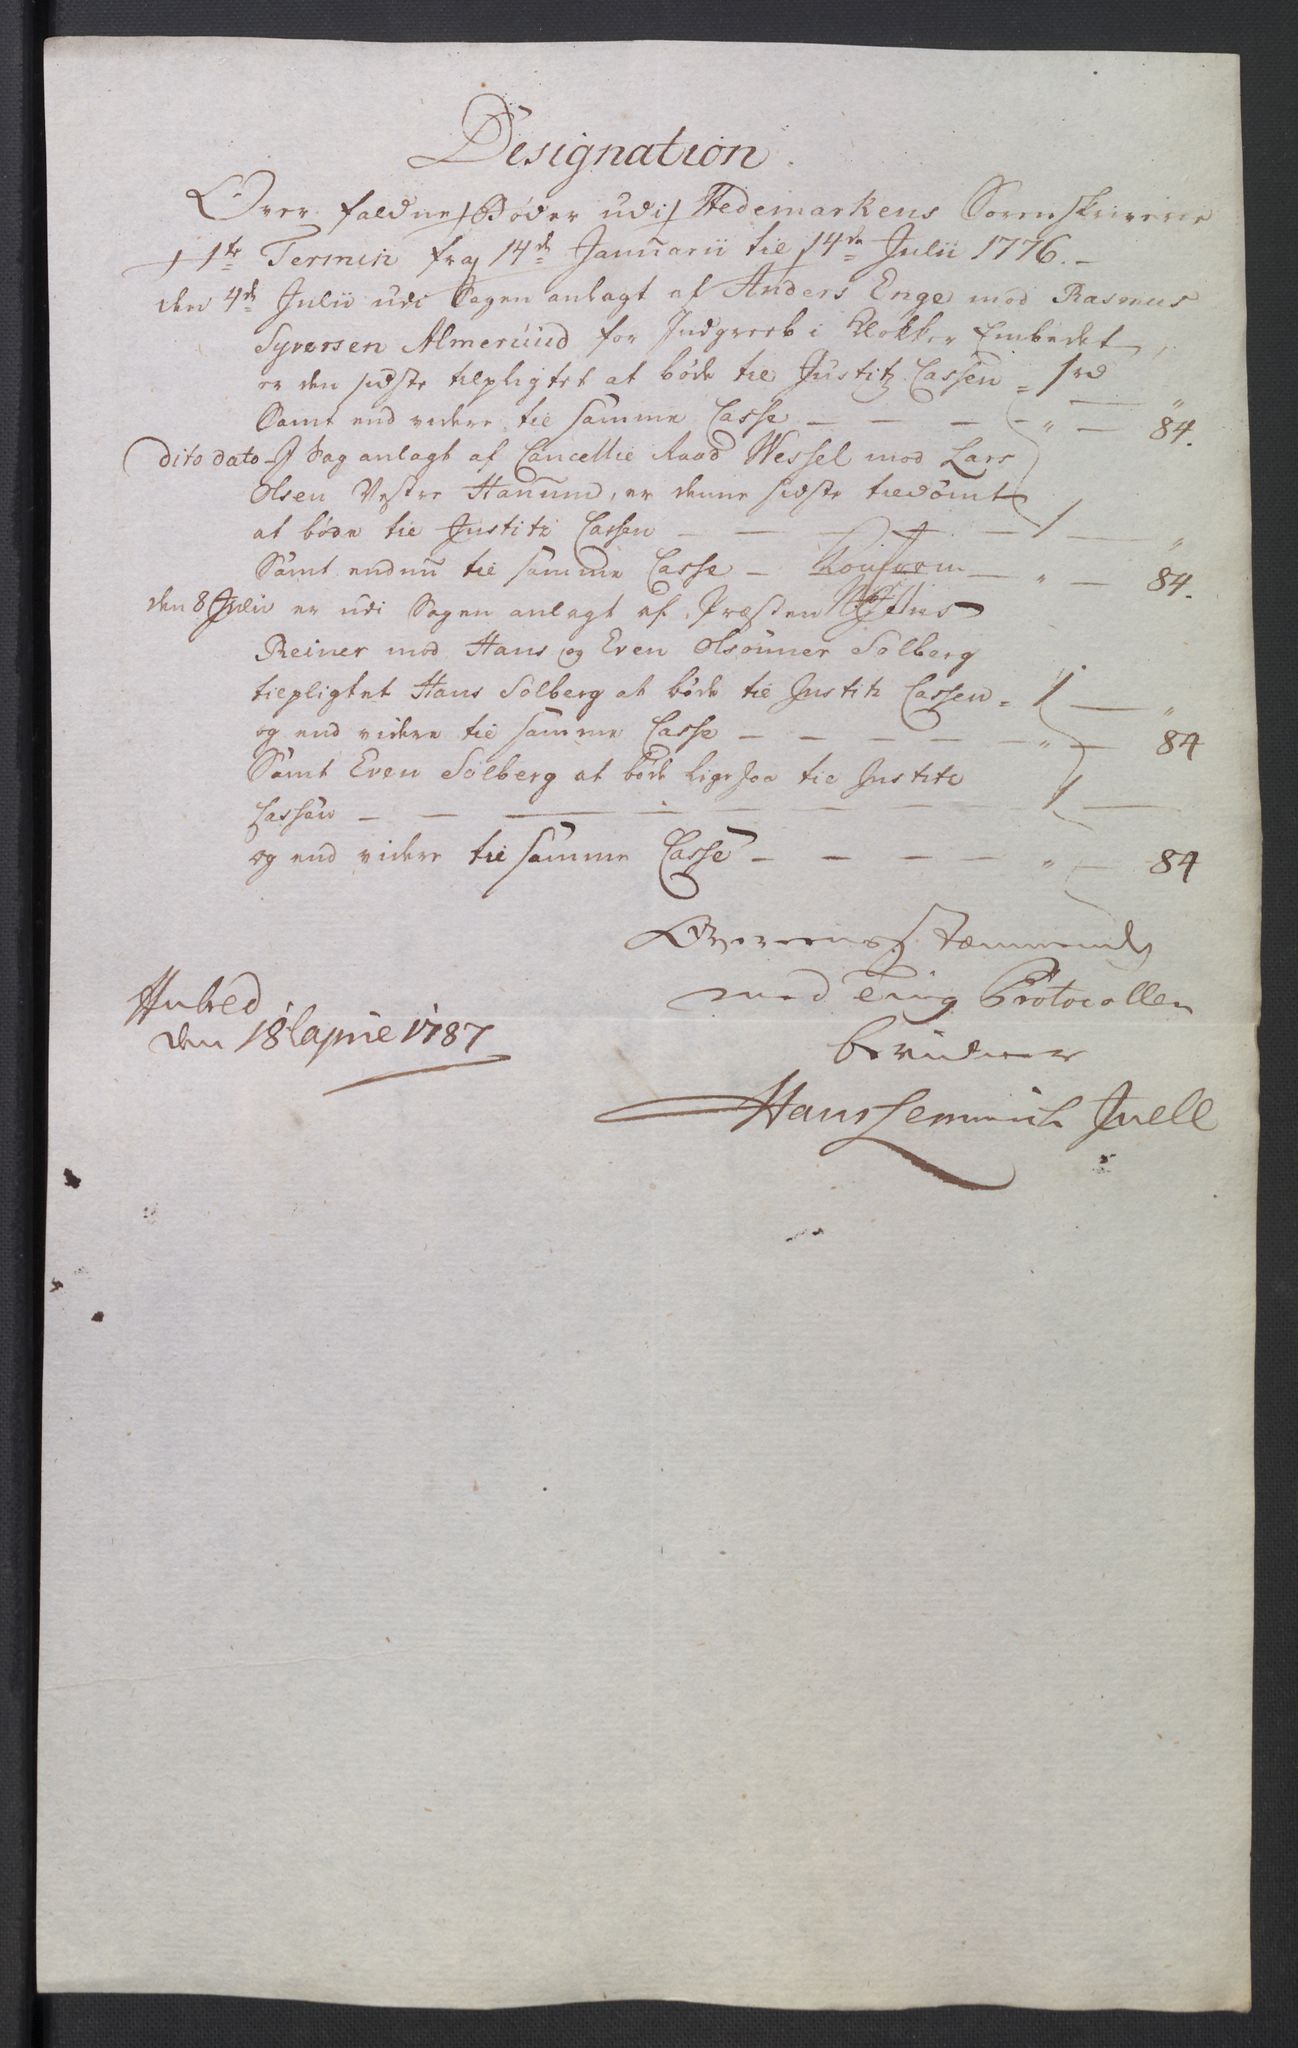 Designation
Over faldne Bøder udi Hedemarkens Sorenskriverie
1te Termin fra 14de Januarii til 14de Julii 1776.
den 4de Julii udi Sagen anlagt af Anders Enge mod Rasmus
Syversen Almeruud for Indgreeb i Klokker Embedet,
er den sidste tilpligtet at bøde til Justitz Cassen = 1 rd — "
Samt end videre til samme Casse — — — — " — 84.
dito dato I Sag anlagt af Cancellie Raad Wessel mod Lars
Olsen Vestre Hauum, er denne sidste tildømt
at bøde til Justitz Cassen — — — — — 1 — "
Samt endnu til samme Casse — — " — 84.
den 8 Julii er udi Sagen anlagt af Præsten Jens
Reiner mod Hans og Even Olsønner Solberg
tilpligtet Hans Solberg at bøde til Justitz Cassen = 1 — "
og end videre til samme Casse — — — — — " — 84
Samt Even Solberg at bøde ligesaa til Justitz
Cassen — — — — — — — 1 —
og end videre til samme Casse — — — — " — 84
Overeensstemmende
med Ting Protocollen
bevidner
Hans Lemmich Juell
den 18 April 1787